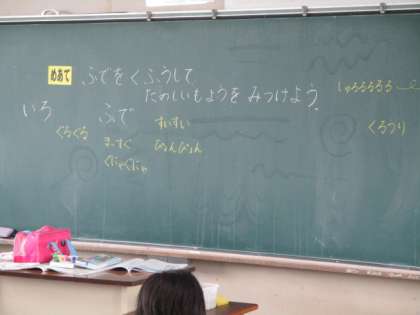 めあて
ふでをくふうして、
たのしいもようをみつけよう。
いろ
ふで
ぐるぐる
まーすぐ
ぐにゃぐにゃ
すいすい
ぴょんぴょん
しゅるるるるる